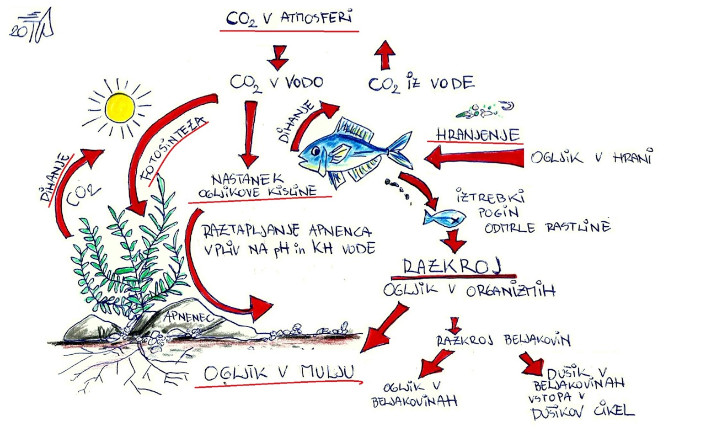 CO₂ V ATMOSFERI
CO₂ V VODO
CO₂ IZ VODE
DIHANJE
HRANJENJE
OGLJIK V HRANI
FOTOSINTEZA
DIHANJE
CO₂
NASTANEK
OGLJIKOVE KISLINE
RAZTAPLJANJE APNENCA
VPLIV NA pH in KH VODE
IZTREBKI
POGIN
ODMRLE RASTLINE
RAZKROJ
OGLJIK V ORGANIZMIH
APNENEC
RAZKROJ BELJAKOVIN
OGLJIK V MULJU
OGLJIK V
BELJAKOVINAH
DUŠIK V
BELJAKOVINAH
VSTOPA V
DUŠIKOV CIKEL